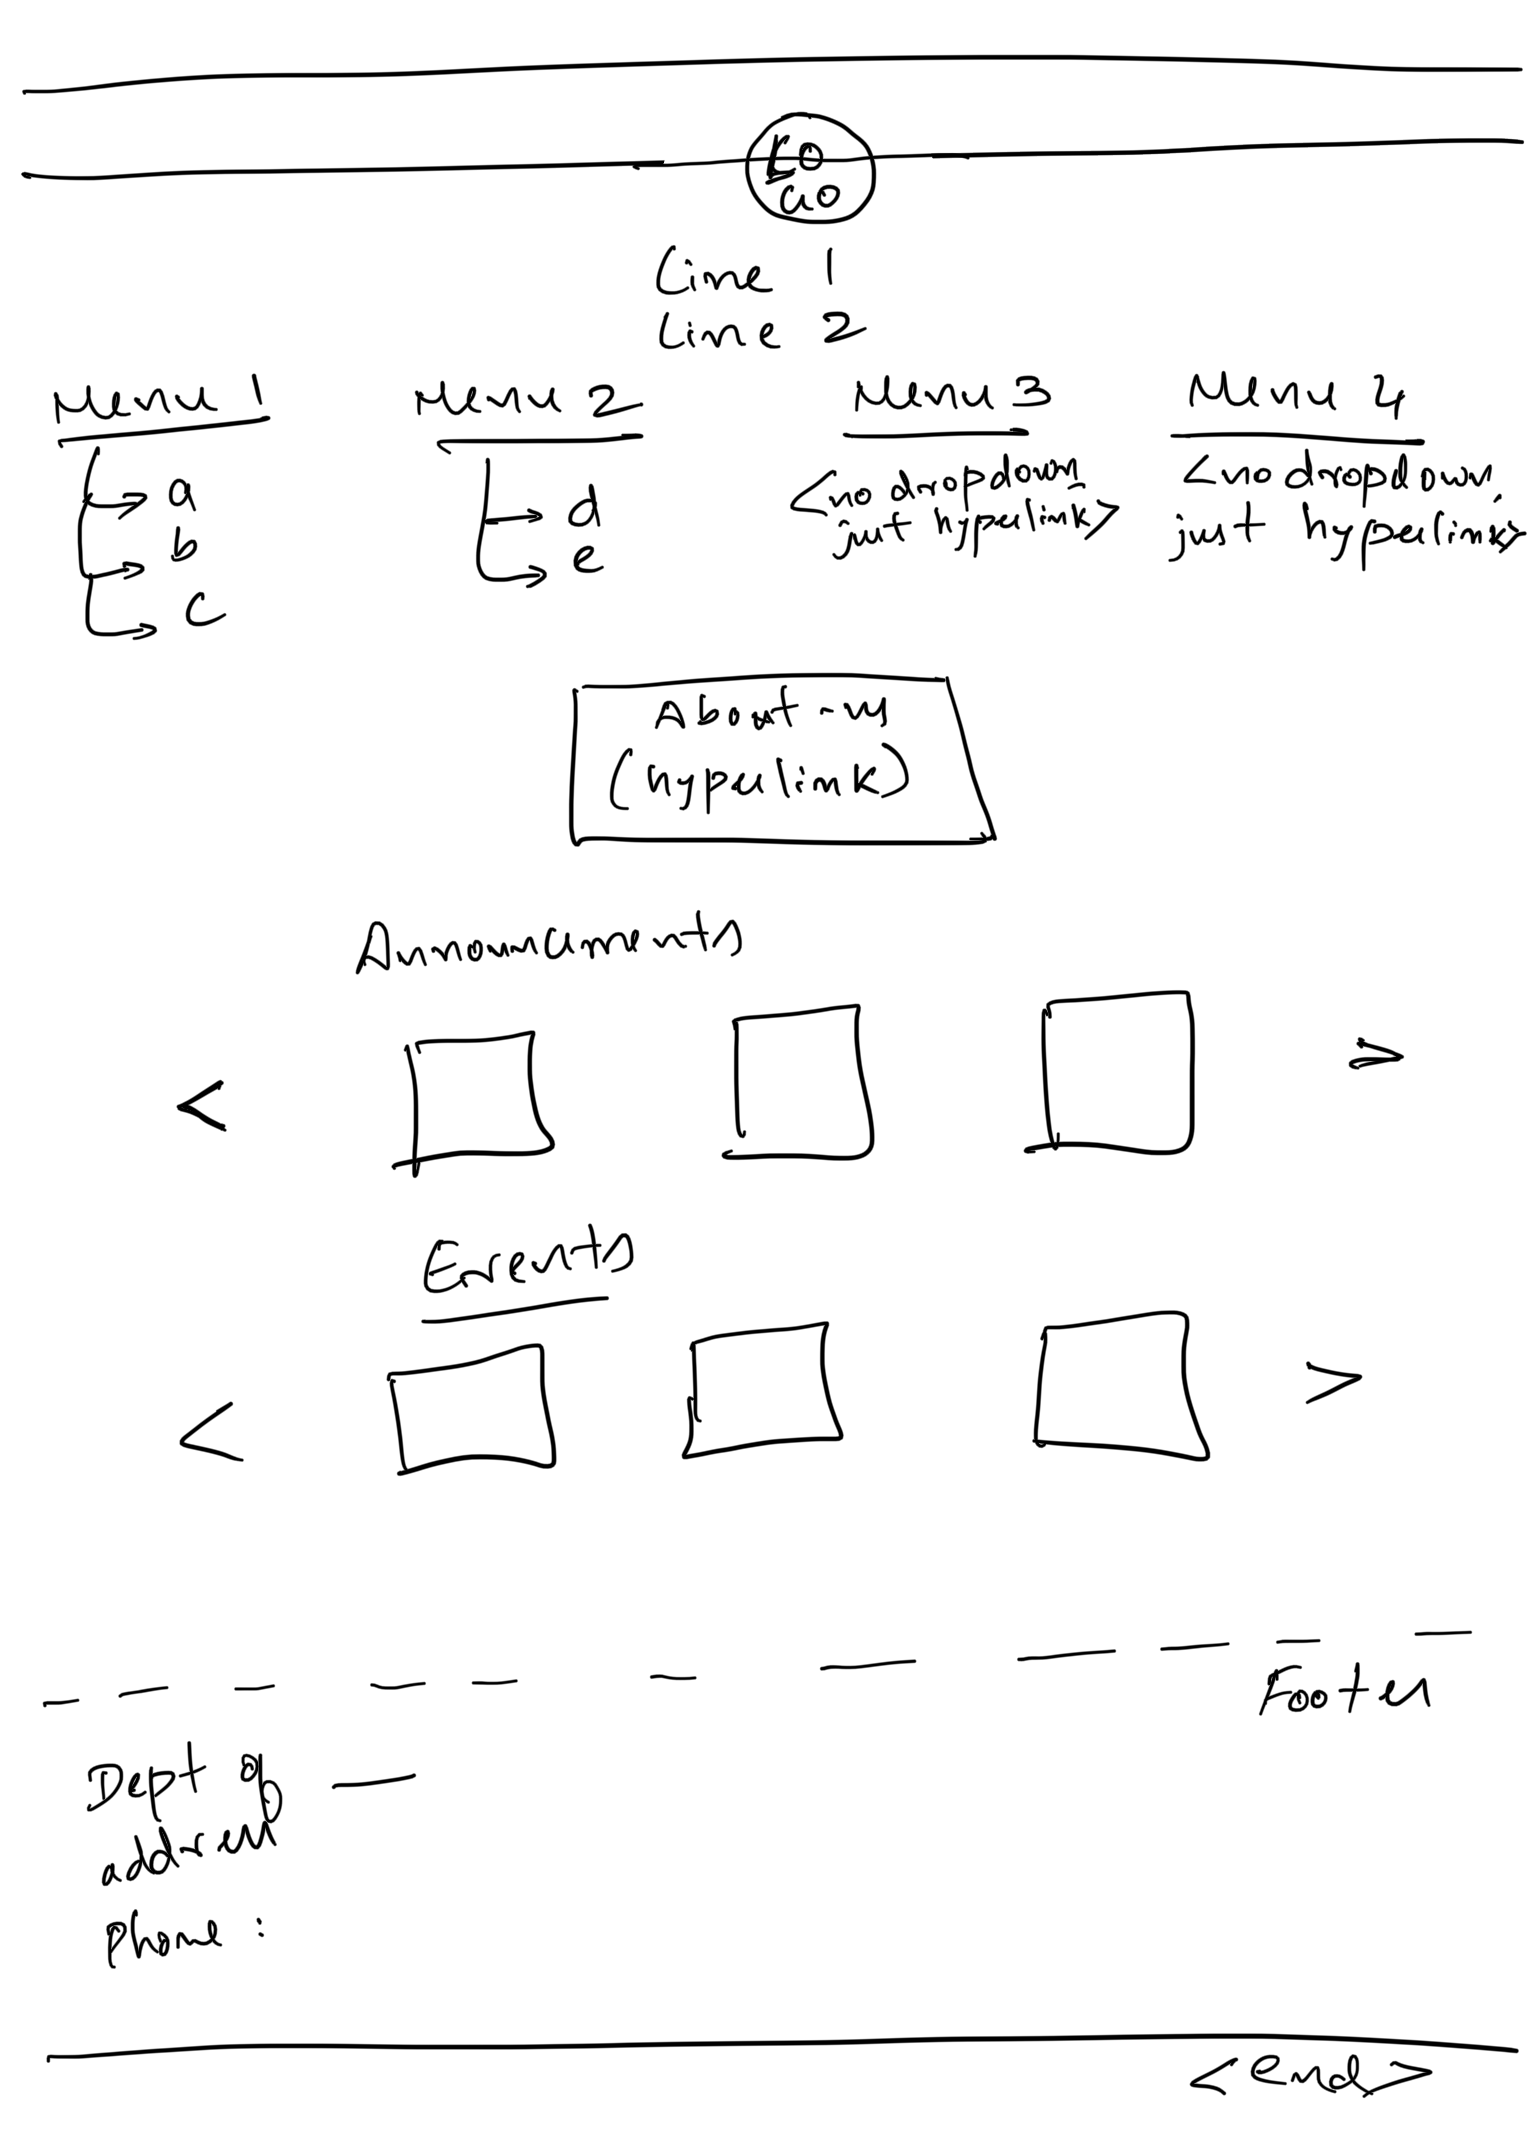 LO
GO
Line 1
Line 2
Menu 1
Menu 2
Menu 3
Menu 4
a
b
c
d
e
<no dropdown,
just hyperlink>
<no dropdown,
just hyperlink>
About-us
(hyperlink)
Announcements
<
>
Events
<
>
Footer
Dept of —
address
Phone :
<end>